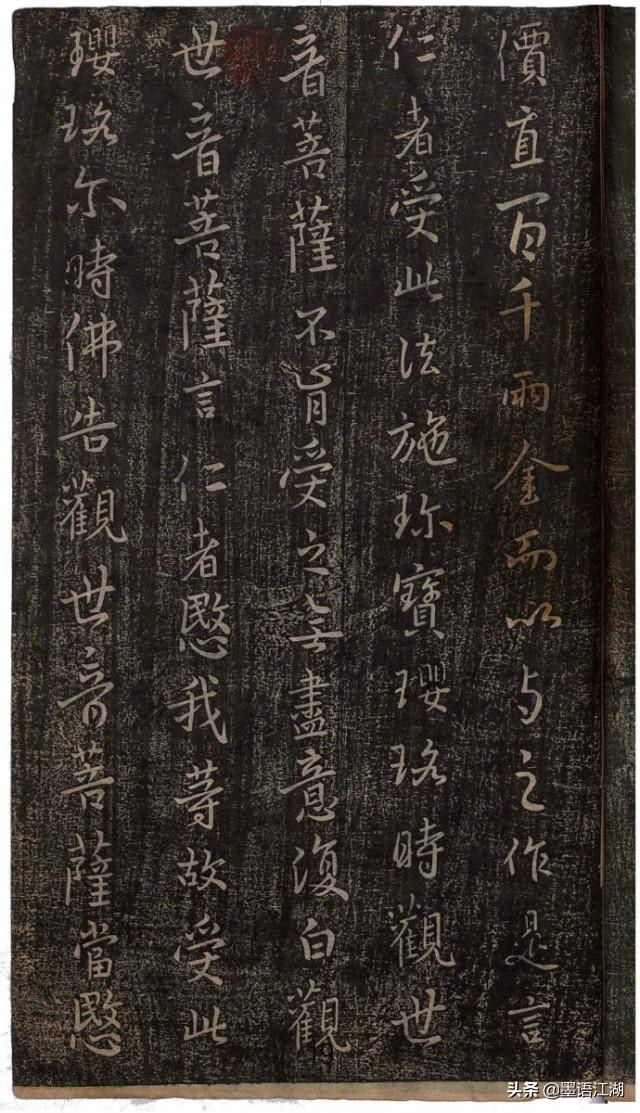 價直百千兩金而以与之作是言
仁者受此法施珎寶瓔珞時觀世
音菩薩不肯受之无盡意復白觀
世音菩薩言仁者愍我等故受此
瓔珞尔時佛告觀世音菩薩當愍
19
头条 @墨语江湖